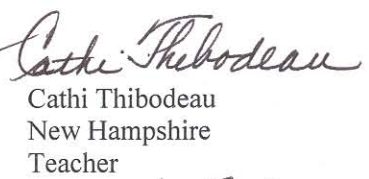 Cathi Thibodeau
Cathi Thibodeau
New Hampshire
Teacher